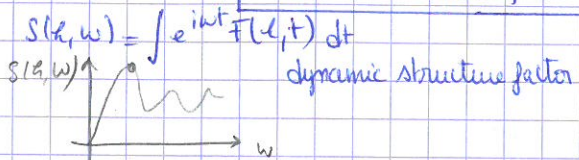 S(k,ω) = ∫ e^{iωt} F(k,t) dt
S(k,ω)
dynamic structure factor
ω